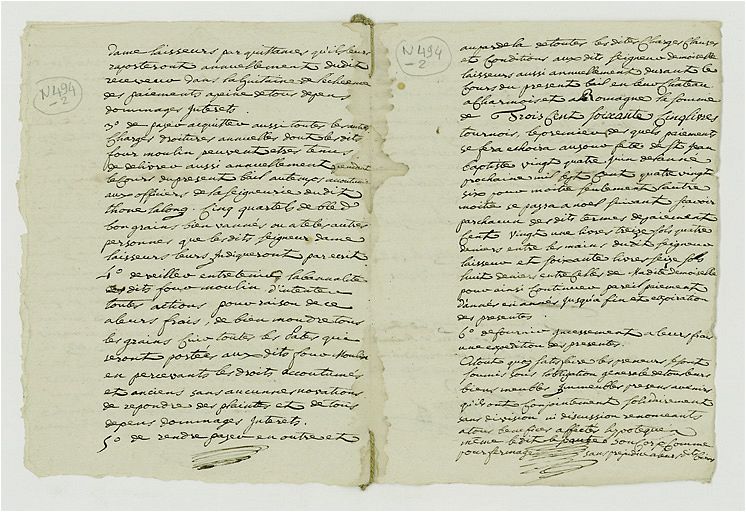 N 494
-2
dame laisseurs par quittances qu'ils leurs
raporteront annuellement dudit
receveur dans la quitaine de lecheence
des paiements a peine de tous depens
dommages Interets
3° de paÿer acquitter aussi toutes les autres
Charges droitures annuelles dont les dits
four moulin peuvent etres tenus
de delivrer aussi annuellement pendant
le Cours du present bail au tems accoutumé
aux officiers de la seigneurie dudit
thone lalong. Cinq quartels de blé
bon grains bien vannés ou a telles autres
personnes que les dits seigneur dame
laisseurs leurs Indiqueront par ecrit
4° de veiller entretenir la bannalité
des dits four moulin d'intenter
toutes actions pour raison de ce
a leurs frais, de bien moudre tous
les grains Cuire toutes les Pates qui
seront portées aux dits four Moulin
en percevants les droits accoutumés
et anciens sans aucunnes novations
de repondre des plaintes et de tous
depens dommages Interets.
5° de rendre paÿer en outre et
N 494
-2
au par dela de toutes les dites Charges Clauses
et Conditions aux dits seigneur demoiselle
laisseurs aussi annuellement durant le
Cours du present bail en leur Chateau
a Charmois et a Romagne la somme
de Trois Cent soixante Cinq livres
tournois, le premier des quels paiement
se fera echoira au jour fete de st jean
baptiste vingt quatre juin de l'année
prochaine mil sept Cent quatre vingt
six pour moitié seulement l'autre
moitié se passa a noel suivant scavoir
par chacun des dits termes de paiement
Cent vingt une livres treize sols quatre
deniers entre les mains dudit seigneur
laisseur et soixante livres seize sols
huit deniers entre Celles de Madite demoiselle
pour ainsi Continuer pareil paiement
d'années en années jusqu'a fin et expiration
des presentes.
6° de fournir incessement a leurs frais
une expedition des presentes.
A tout quoy satisfaire les preneurs se sont
soumis sous l'obligation generale de tous leurs
biens meubles Immeubles presens avenirs
qu'ils ont Conjointement solidairement
sans division ni discussion renonceants
a tous benefices affectés hypotequés
même ledit son Corps Comme
pour fermages sans prejudice